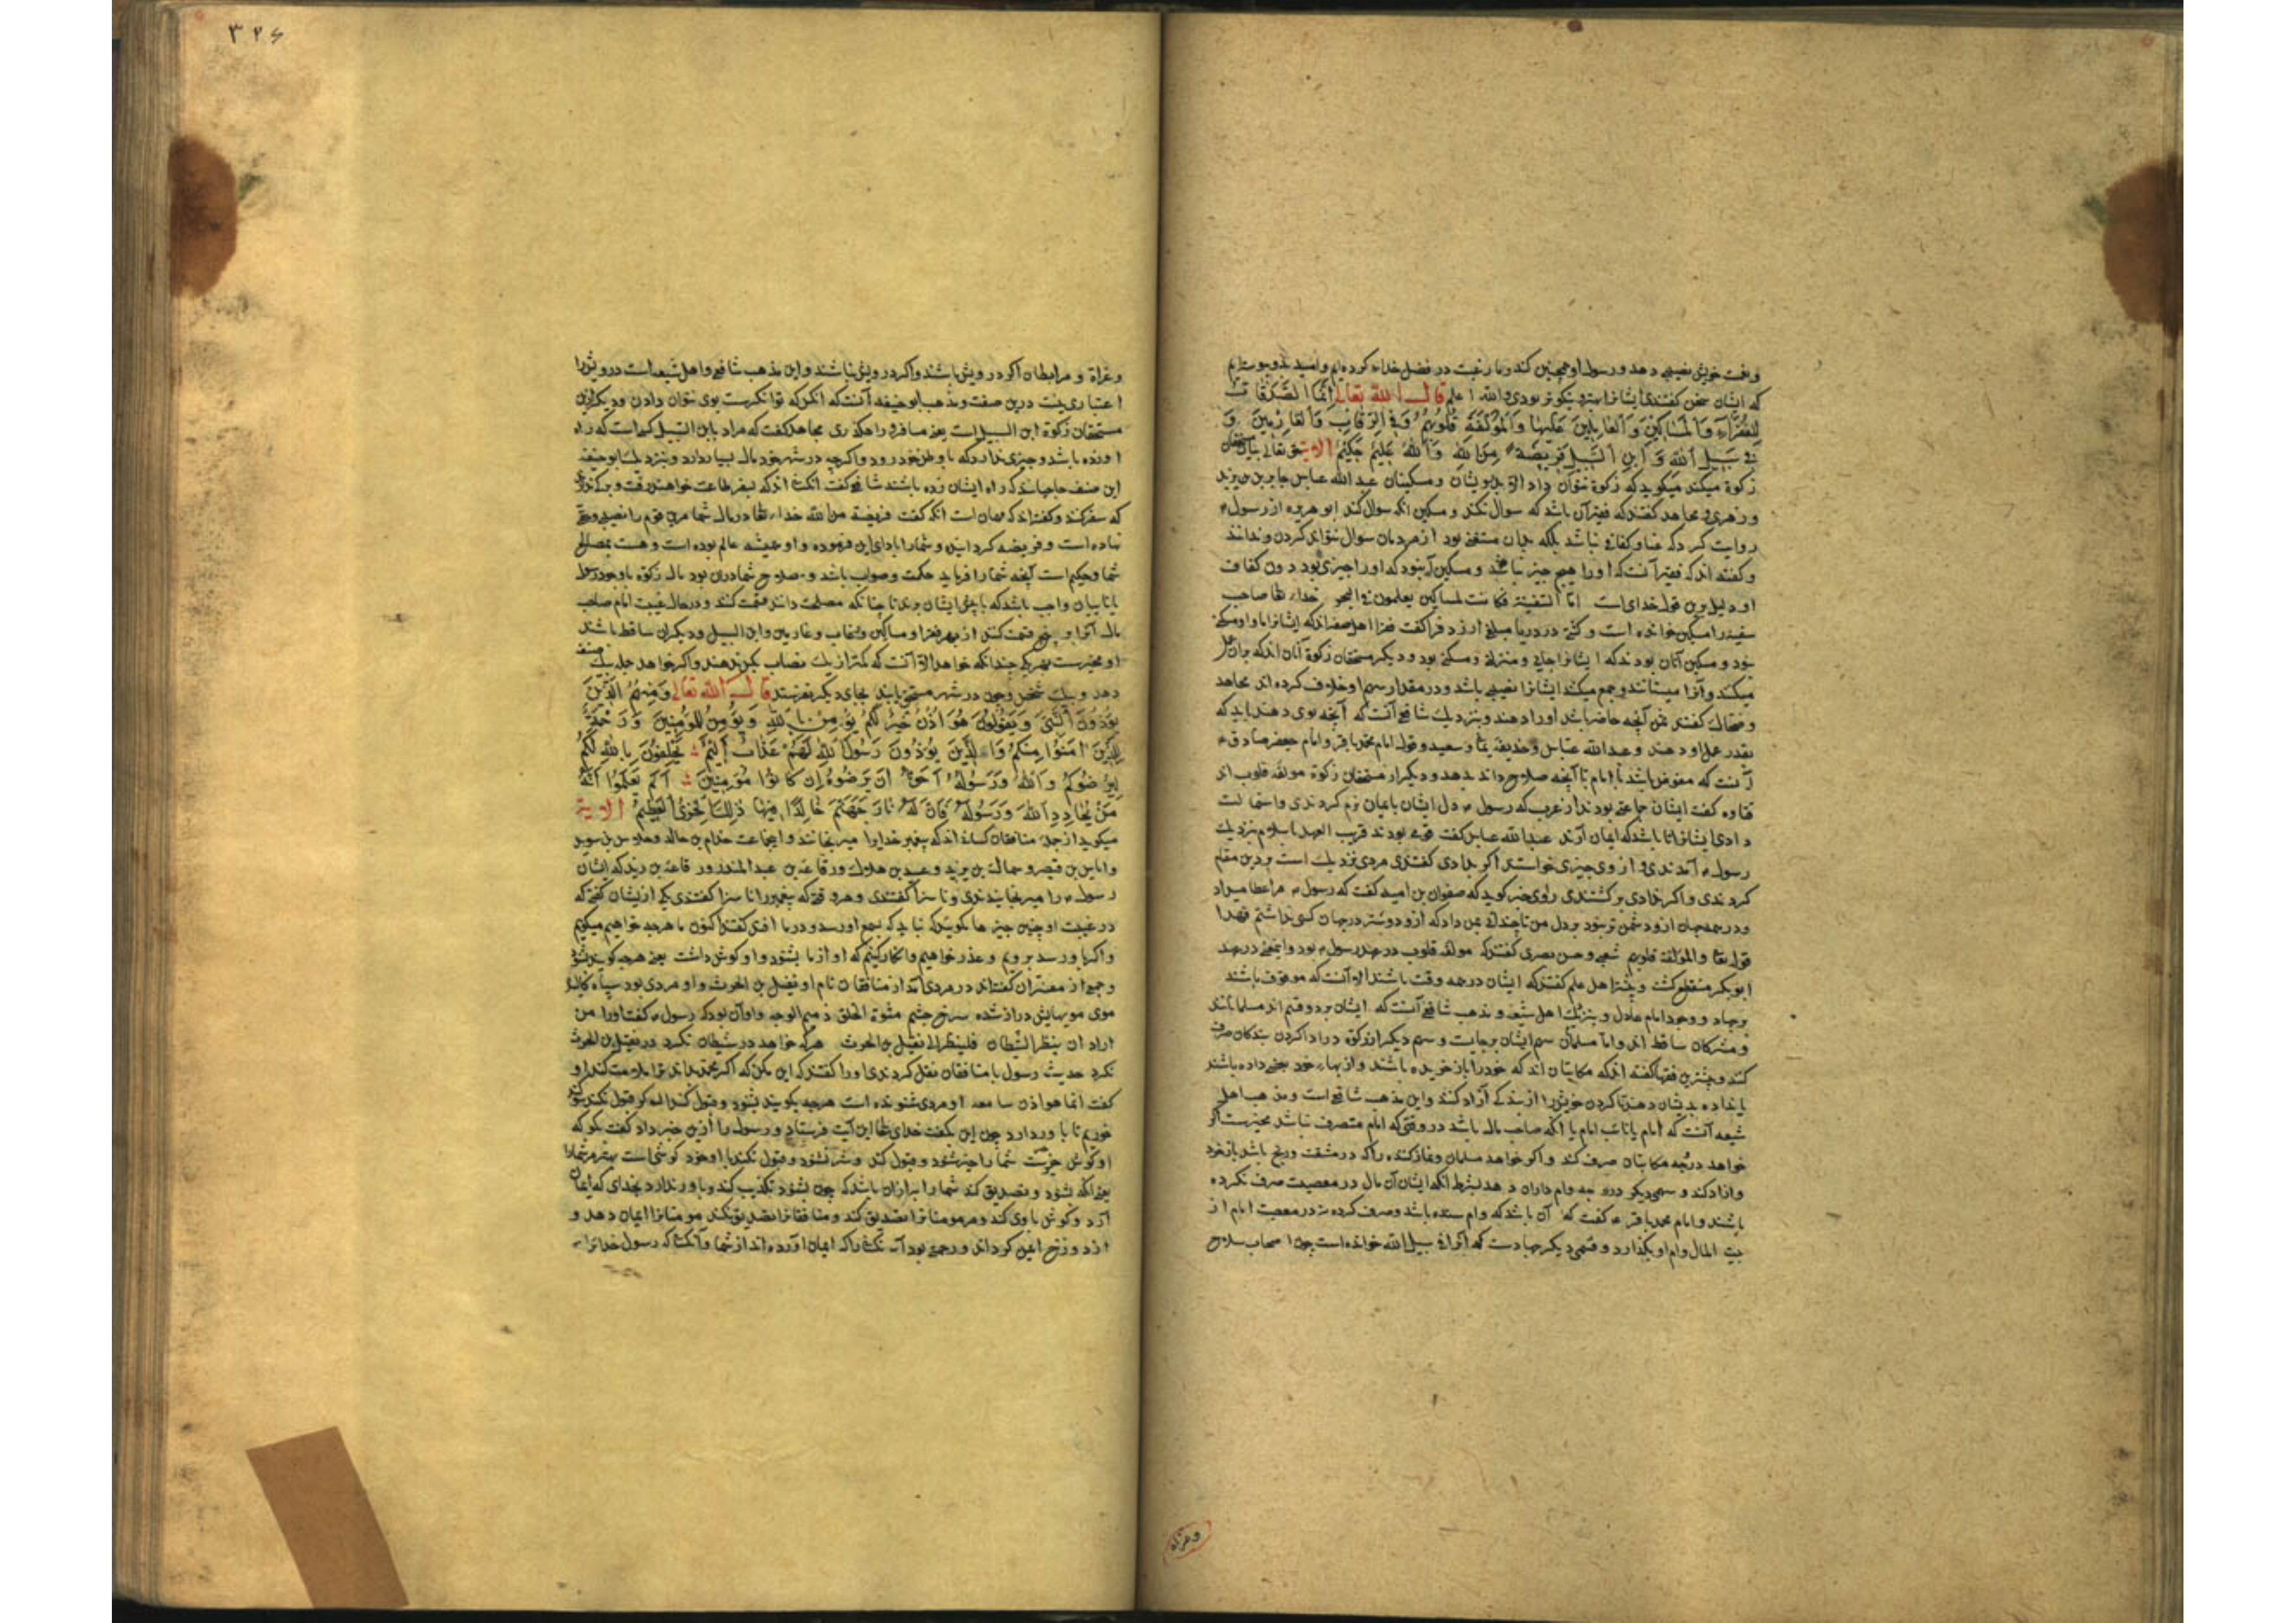 وقت خویش نصیبی دهد و رسول او همچنین کند و ما رغبت در فضل خدای کرده‌ایم و امید بدو
که ایشان سخن گفتندی ایشانرا بهتر و نیکوتر بودی والله اعلم قال الله تعالی إنما الصدقات
للفقراء والمساکین والعاملین علیها والمؤلفة قلوبهم وفی الرقاب والغارمین و
فی سبیل الله وابن السبیل فریضة من الله والله علیم حکیم الایة حق تعالی بیان
زکوة میکند میگوید که زکوة نتوان داد الا بدرویشان و مسکینان عبد الله عباس جابر بن یزید
و زهری و مجاهد گفتند که فقیر آن باشد که سوال نکند و مسکین انکه سوال کند ابو هریره از رسول
روایت کرد که باشد بلکه مستغنی بود از مردمان سوال نتواند کردن و ندانند
و گفته اند که فقیر آنست که او را هیچ چیز نباشد و مسکین آن بود که او را چیزی بود دون کفاف
او دلیل برین قول خدای است اما السفینة فکانت لمساکین یعملون فی البحر خدای تعالی صاحب
سفینه را مسکین خوانده است و کشتی در دریا مبلغی ارزد فرا گفت فقرا اهل صفه اند که ایشانرا ماوا و مسکنی
بود و مسکین آنان بودند که ایشانرا جای و منزلی و مسکنی بود و دیگر مستحقان زکوة آنان اند که بران عمل
میکنند و آنرا میستانند و جمع میکنند ایشانرا نصیبی باشد و در مقدار سهم او خلاف کرده اند مجاهد
و ضحاک گفتند ثمن آنچه حاضر باشد او را دهند و بنزدیک شافعی آنست که آنچه بوی دهند باید که
بقدر عمل او دهند و عبدالله عباس و حذیفه یمان و سعید و قول امام محمد باقر و امام جعفر صادق
آنست که مفوض باشد با امام تا آنچه صلاح داند بدهد و دیگر از مستحقان زکوة مولفه قلوب اند
قتاده گفت ایشان جماعتی بودند از عرب که رسول دل ایشان بایمان نرم کردندی و استمالت
دادی ایشانرا تا باشد که ایمان آرند عبدالله عباس گفت قومی بودند قریب العهد باسلام بنزدیک
رسول آمدندی و از وی چیزی خواستند اگر بدادی گفتندی مردی نزدیک است برین مقام
کردندی و اگر ندادی برگشتندی راوی خبر گوید که صفوان بن امیه گفت که رسول مرا عطا میداد
و در همه جهان ازو دشمن تر نبود بر دل من تا چندانی بمن داد که ازو دوستر در جهان کسی نداشتم فهذا
قوله تعالی والمؤلفة قلوبهم شعبی و حسن بصری گفتند که مولفه قلوب در عهد رسول بود و این معنی در عهد
ابوبکر منقطع گشت و بیشتر اهل علم گفتند که ایشان در همه وقت باشند الا آنست که موقوف باشند
بر جهاد و وجود امام عادل و بنزدیک اهل شیعه و مذهب شافعی آنست که ایشان بر دو قسم اند مسلمانانند
و مشرکان ساقط اند و اما مسلمان سهم ایشان بر جایست و سهم دیگر از زکوة در ادا کردن بندگان صرف
کنند و بیشترین فقها گفته اند که مکاتبان اند که خود را باز خریده باشند و از بهای خود بعضی داده باشند
یا نداده بدیشان دهند تا گردن خویش را از بندگی آزاد کنند و این مذهب شافعی است و مذهب اهل
شیعه آنست که امام یا نائب امام یا انکه صاحب مال باشد در وقتی که امام متصرف نباشد مخیرست اگر
خواهد در وجه مکاتبان صرف کند و اگر خواهد مسلمان و نماز کننده را که در مشقت و رنج باشد باز خرد
و آزاد کند و سهمی دیگر در وجه وام داران دهد بشرط انکه ایشان آن مال در معصیت صرف نکرده
باشند و امام محمد باقر گفت که آن باشد که وام ستده باشد و صرف کرده نه در معصیت امام از
بیت المال وام او بگذارد و قسمی دیگر جهادست که آنرا فی سبیل الله خوانده است چون اصحاب سلاح
وغزاة
۳۲۶
وغزاة و مرابطان اگر درویش باشند و اگر درویش نباشند و این مذهب شافعی و اهل شیعه است درویشی را
اعتباری نیست درین صفت و مذهب ابو حنیفه آنست که انکس که توانگرست بوی نتوان دادن و دیگر ازین
مستحقان زکوة ابن السبیل است یعنی مسافر و راهگذری مجاهد گفت که مراد بابن السبیل کسی است که راه
آورده باشد و چیزی ندارد که با وطن خود رود و اگرچه در شهر خود مال بسیار دارد و بنزد ابو حنیفه
این صنف حاجیانند که راه ایشان زده باشند شافعی گفت آنکسانند که بسفر طاعت خواهند رفت و برگذری
که سفر کنند و گفته اند که مهمان است انکه گفت فریضة من الله خدای تعالی در مال شما مرین قوم را نصیبی و حقی
نهاده است و فریضه کرد این و شما را بادای این فرموده و او همیشه عالم بوده است و هست بمصالح
شما و حکیم است آنچه شما را فرماید حکمت و صواب باشد و صلاح شما درین بود مال زکوة با وجود رسول
یا نایبان واجب باشد که با پیش ایشان برند تا چنانکه مصلحت دانند قسمت کنند و در حال غیبت امام صاحب
مال آنرا و پنج قسمت کند از بهر فقرا و مساکین و رقاب و غارمین و ابن السبیل و دیگران ساقط باشند
او مخیرست بهر یکی چندانکه خواهد الا آنست که کمتر از یک نصاب بکس ندهند و اگر خواهد جمله بیک صنف
دهد و بیک شخص و چون در شهر مستحق یابند بجای دیگر نفرستند قال الله تعالی ومنهم الذین
یؤذون النبی ویقولون هو اذن قل اذن خیر لکم یؤمن بالله ویؤمن للمؤمنین ورحمة
للذین امنوا منکم والذین یؤذون رسول الله لهم عذاب ألیم یحلفون بالله لکم
لیرضوکم والله ورسوله أحق أن یرضوه إن کانوا مؤمنین ألم یعلموا أنه
من یحادد الله ورسوله فأن له نار جهنم خالدا فیها ذلک الخزی العظیم الایة
میگوید از جمله منافقان کسانند که پیغمبر خدایرا میرنجانند و این جماعت خدام بن خالد و جلاس بن سوید
و ایاس بن قیصر و سماک بن یزید و عبید بن هلال و رفاعة بن عبد المنذر و رفاعة بن زید که ایشان
رسول را میرنجانیدندی و ناسزا گفتندی و هر وقت که پیغمبر را ناسزا گفتندی یکی از ایشان گفتی که
در غیبت او چنین چیزها مگویید که نباید که بسمع او رسد و در ما افتد گفتند اکنون ما هرچه خواهیم میگوییم
و اگر باو رسد برویم و عذر خواهیم و انکار کنیم که او از ما بشنود و او گوش داشت یعنی هرچه گویند بشنود
و جمعی از مفسران گفته اند در مردی آمد از منافقان نام او نفیل بن الحرث و او مردی بود سیاه
موی موبهایش دراز شده سرخ چشم مشوه الخلق ذمیم الوجه و او آن بود که رسول گفت او را من
اراد ان ینظر الشیطان فلینظر الی نفیل بن الحرث هر که خواهد در شیطان نگرد در نفیل بن الحرث
نگرد حدیث رسول با منافقان نقل کردندی او را گفتند که این مکن که اگر محمد بداند ترا ملامت کند او
گفت انما هو اذن سامعه او مردی شنونده است هرچه بگویند بشنود و قبول کند
خوریم تا باور دارد چون این بگفت خدای تعالی این آیت فرستاد و رسول را ازین خبر داد گفت بگو که
او گوش خیرست شما را خیر شنود و قبول کند و شر نشنود و قبول نکند
یعنی انکه بشنود و تصدیق کند شما را به از آن باشد که چون بشنود تکذیب کند و باور ندارد بخدای که ایمان
آرد و گوش باوی کند و مر مومنانرا تصدیق کند و منافقانرا تصدیق نکند مومنانرا ایمان دهد و
از دوزخ ایمن گرداند و رحمتی بود آنکسانرا که ایمان آورده اند از شما و آنکسان که رسول خدایرا